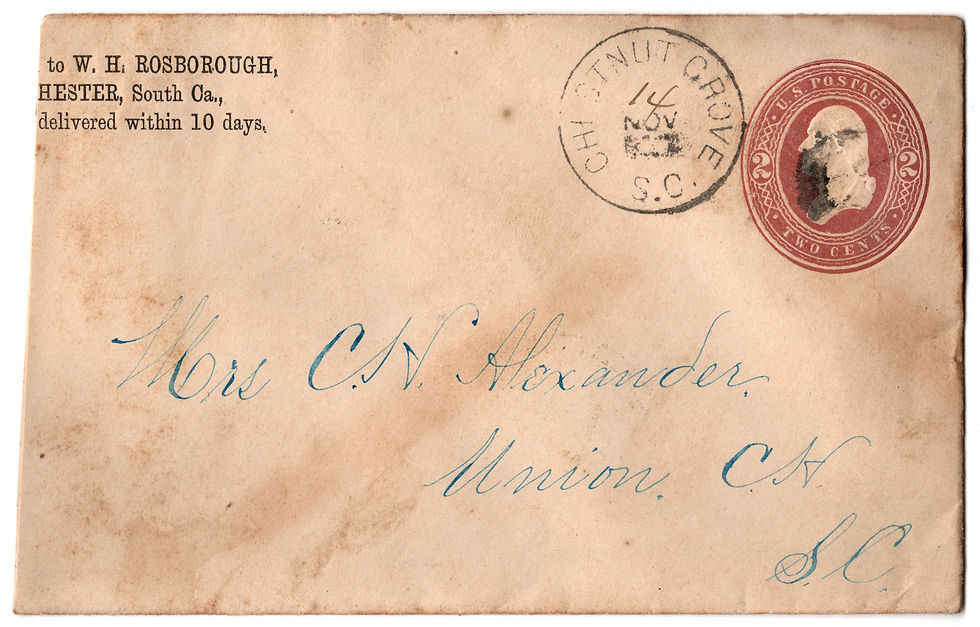 to W. H. ROSBOROUGH,
HESTER, South Ca.,
delivered within 10 days.
CHESTNUT GROVE S.C.
14
NOV
U.S. POSTAGE
2 2
TWO CENTS
Mrs C. H. Alexander.
Union. C H.
S. C.